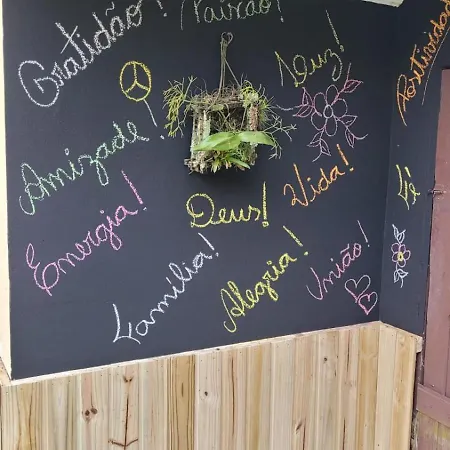 Gratidão!
Paixão!
Luz!
Amizade!
Vida!
Deus!
Energia!
Família!
Alegria!
União!
Fé!